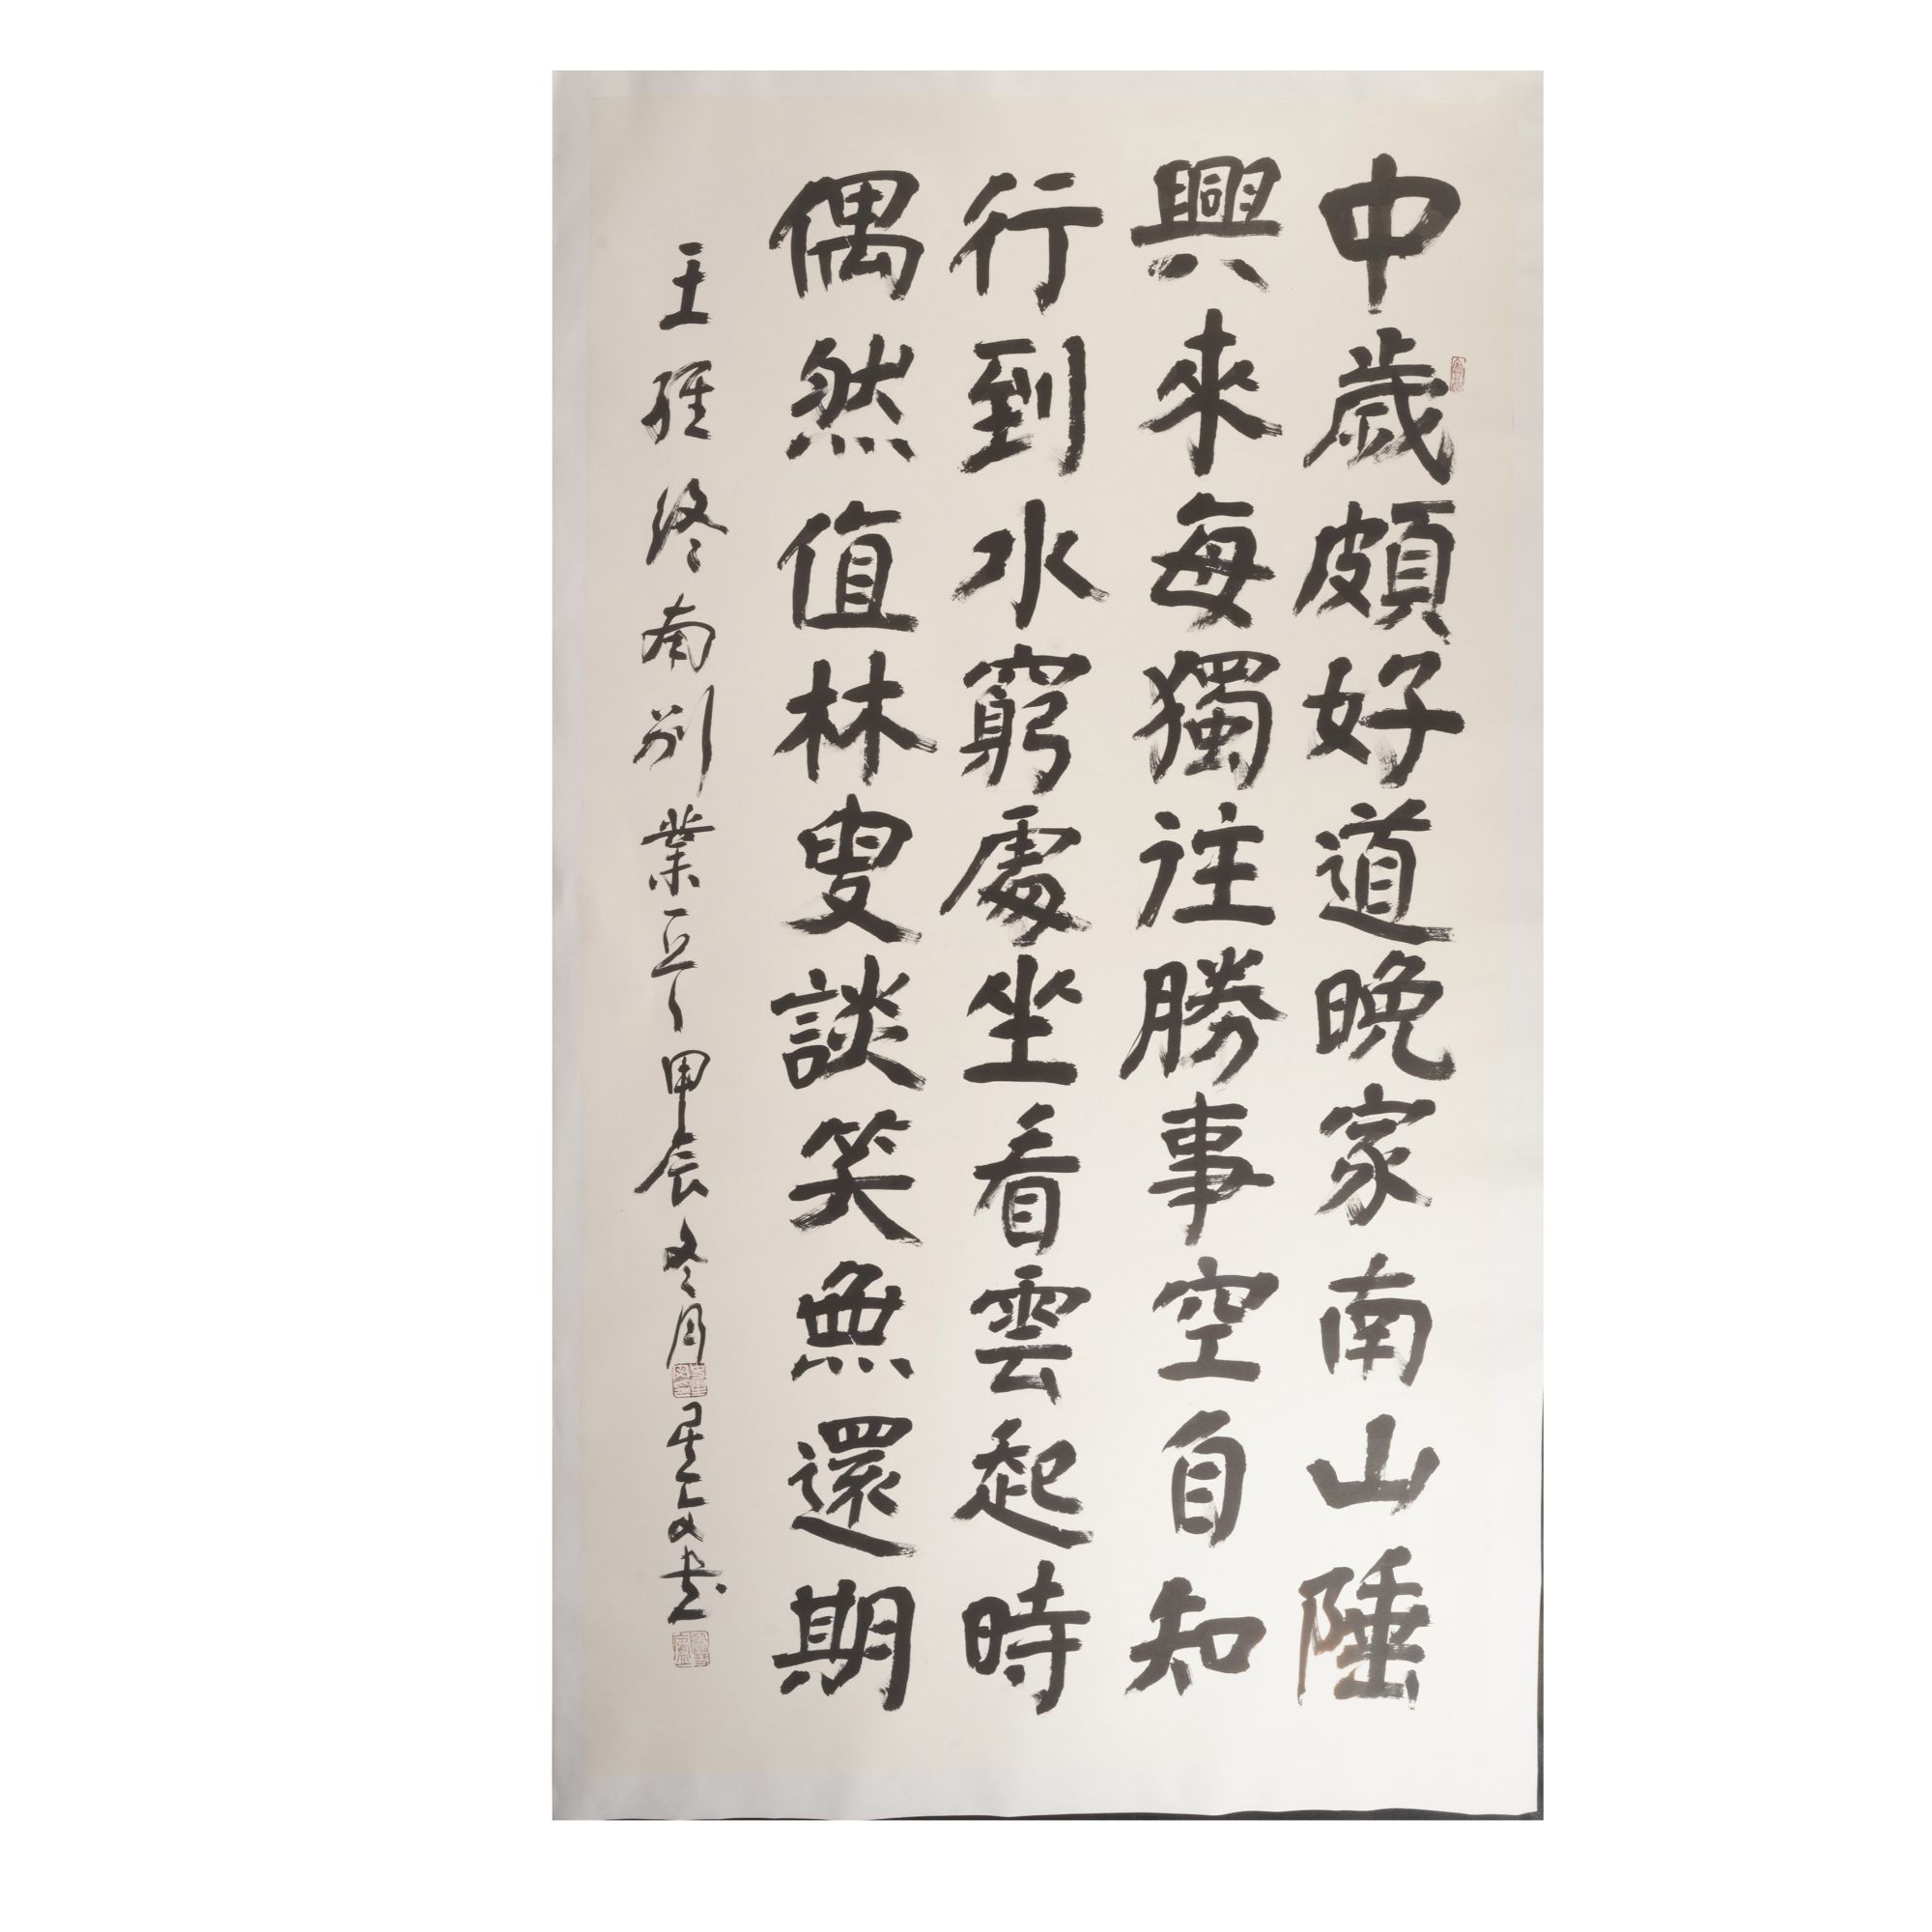 中歲頗好道晚家南山陲
興來每獨往勝事空自知
行到水窮處坐看雲起時
偶然值林叟談笑無還期
王維終南別業一首甲辰冬月